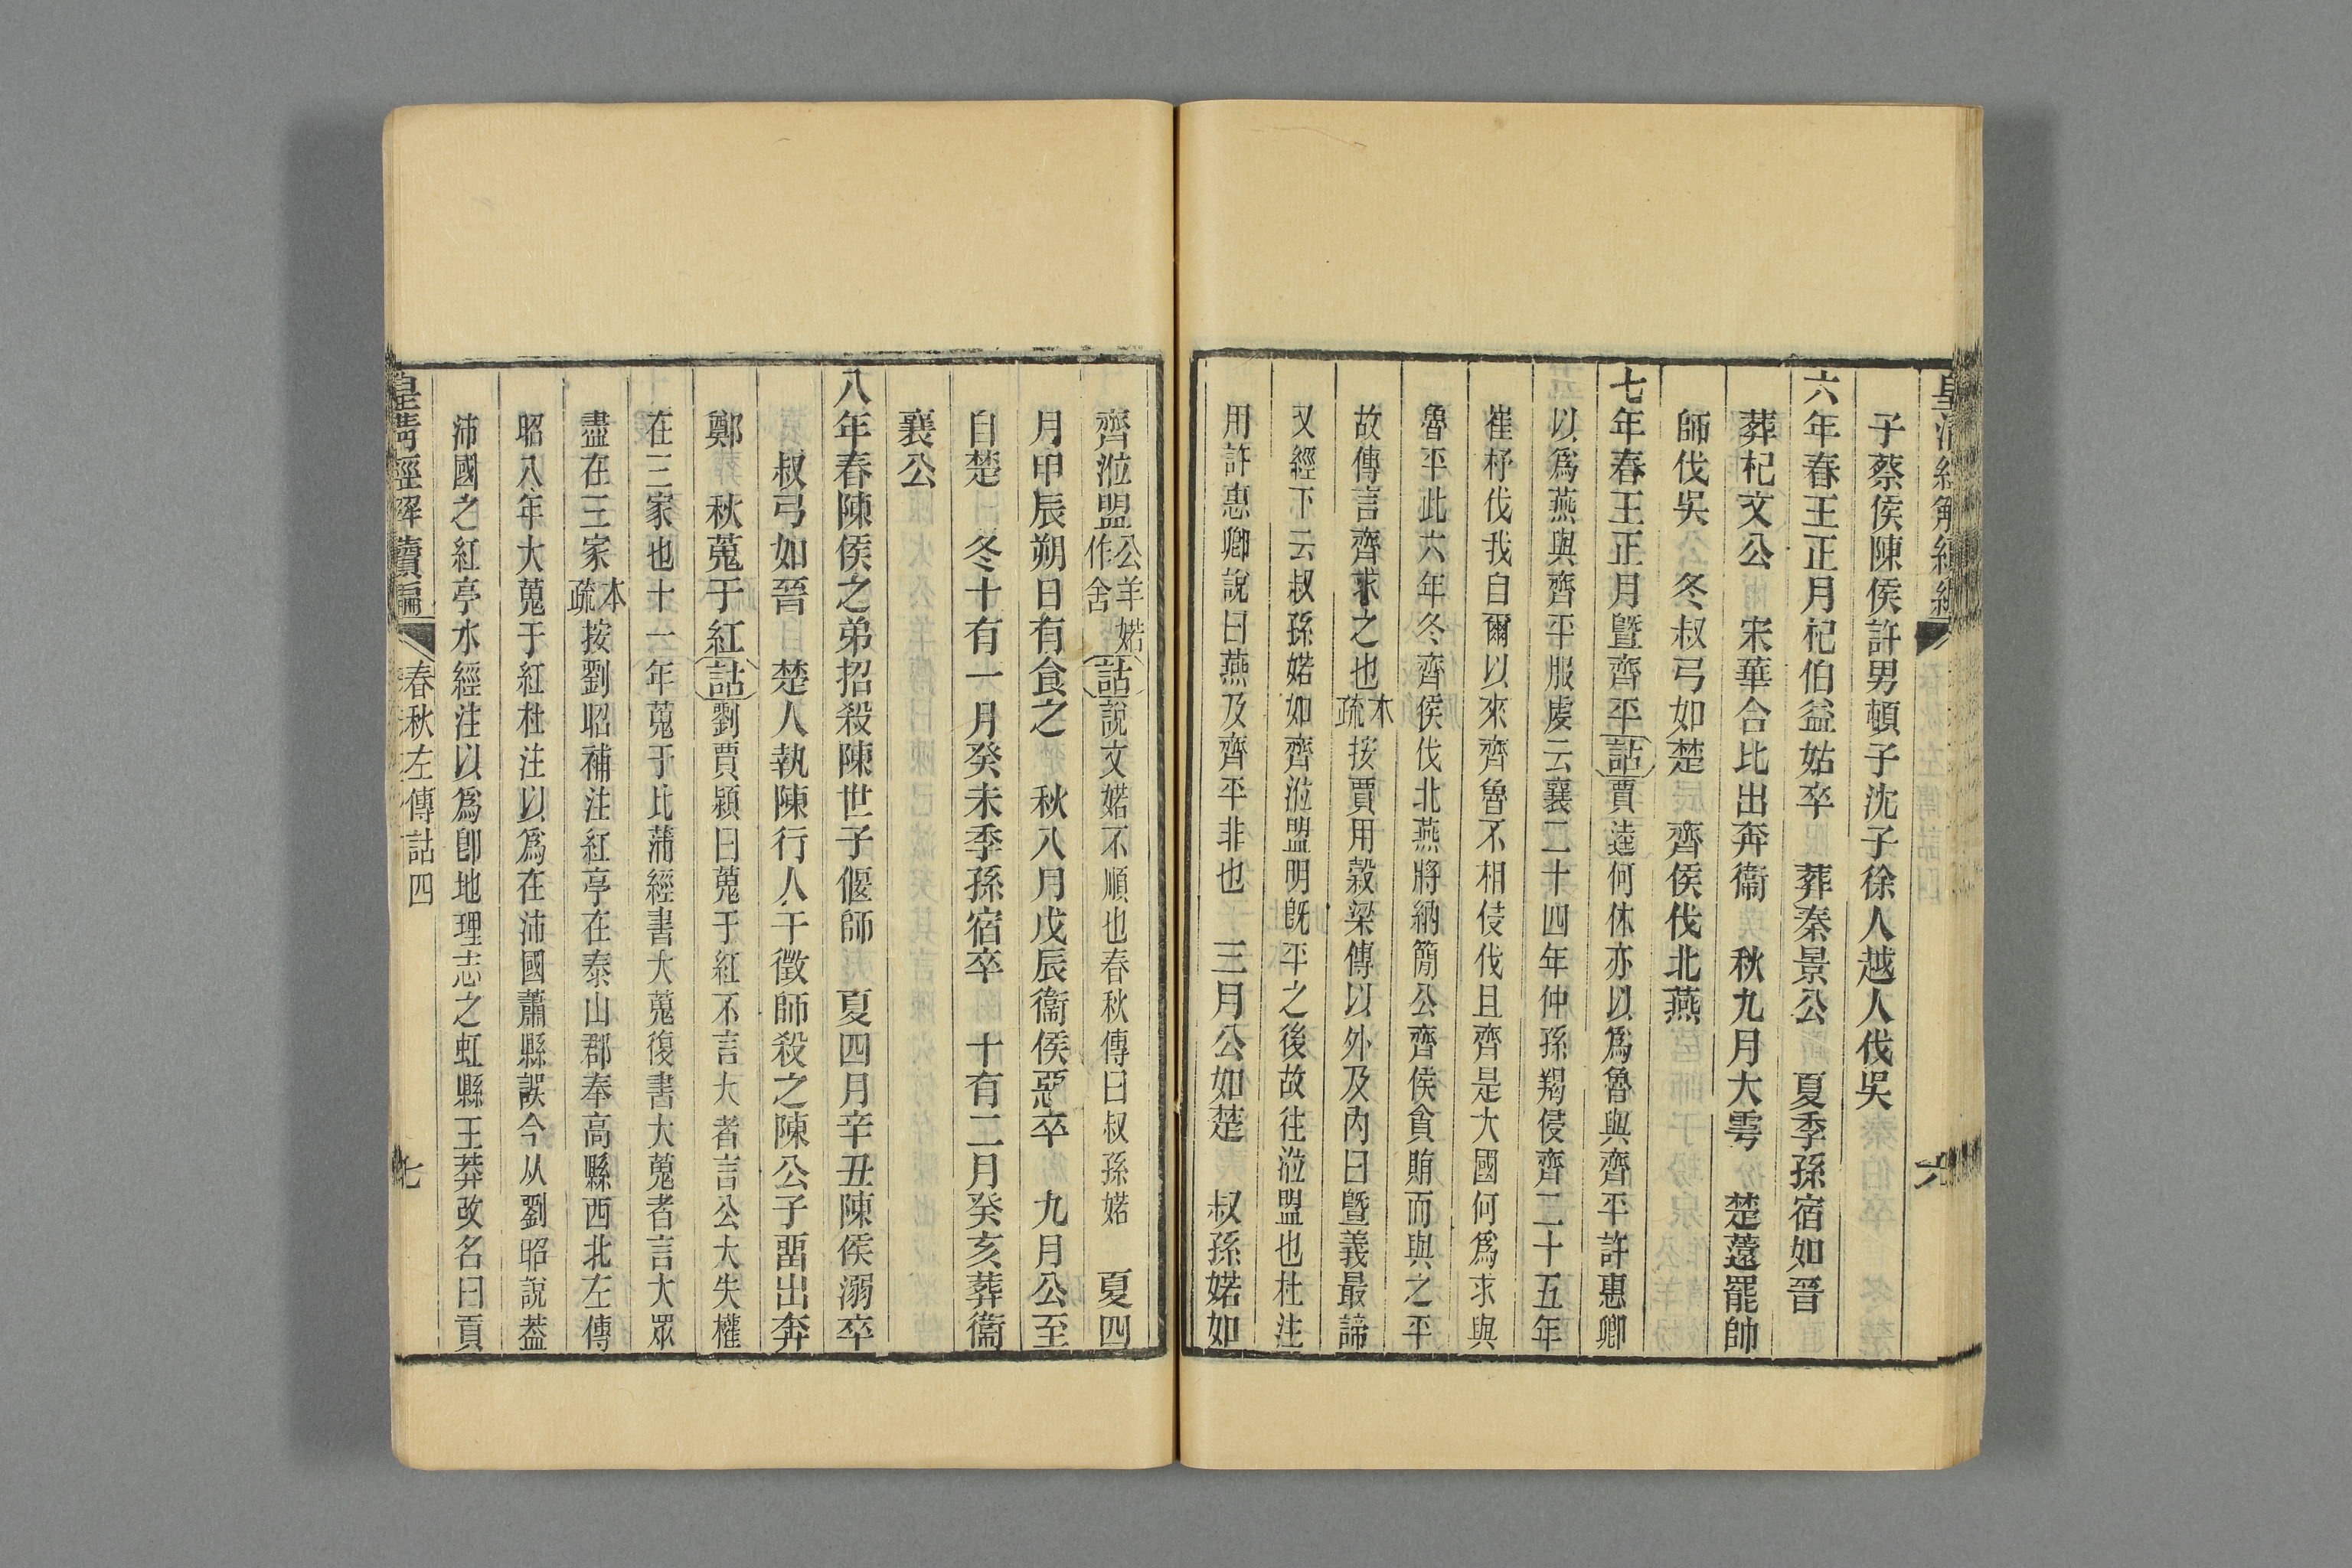 皇清經解續編
六
子蔡侯陳侯許男頓子沈子徐人越人伐吳
六年春王正月杞伯益姑卒　葬秦景公　夏季孫宿如晉
葬杞文公　宋華合比出奔衞　秋九月大雩　楚薳罷帥
師伐吳　冬叔弓如楚　齊侯伐北燕
七年春王正月暨齊平詁賈逵何休亦以爲魯與齊平許惠卿
以爲燕與齊平服虔云襄二十四年仲孫羯侵齊二十五年
崔杼伐我自爾以來齊魯不相侵伐且齊是大國何爲求與
魯平此六年冬齊侯伐北燕將納簡公齊侯貪賄而與之平
故傳言齊求之也本疏按賈用穀梁傳以外及內曰暨義最諦
又經下云叔孫婼如齊涖盟明旣平之後故往涖盟也杜注
用許惠卿說曰燕及齊平非也　三月公如楚　叔孫婼如
齊涖盟公羊婼作舍詁說文婼不順也春秋傳曰叔孫婼　夏四
月甲辰朔日有食之　秋八月戊辰衞侯惡卒　九月公至
自楚　冬十有一月癸未季孫宿卒　十有二月癸亥葬衞
襄公
八年春陳侯之弟招殺陳世子偃師　夏四月辛丑陳侯溺卒
叔弓如晉　楚人執陳行人干徵師殺之陳公子畱出奔
鄭　秋蒐于紅詁劉賈潁曰蒐于紅不言大者言公大失權
在三家也十一年蒐于比蒲經書大蒐復書大蒐者言大眾
盡在三家本疏按劉昭補注紅亭在泰山郡奉高縣西北左傳
昭八年大蒐于紅杜注以爲在沛國蕭縣誤今从劉昭說葢
沛國之紅亭水經注以爲卽地理志之虹縣王莽改名曰貢
皇清經解續編
春秋左傳詁四
七